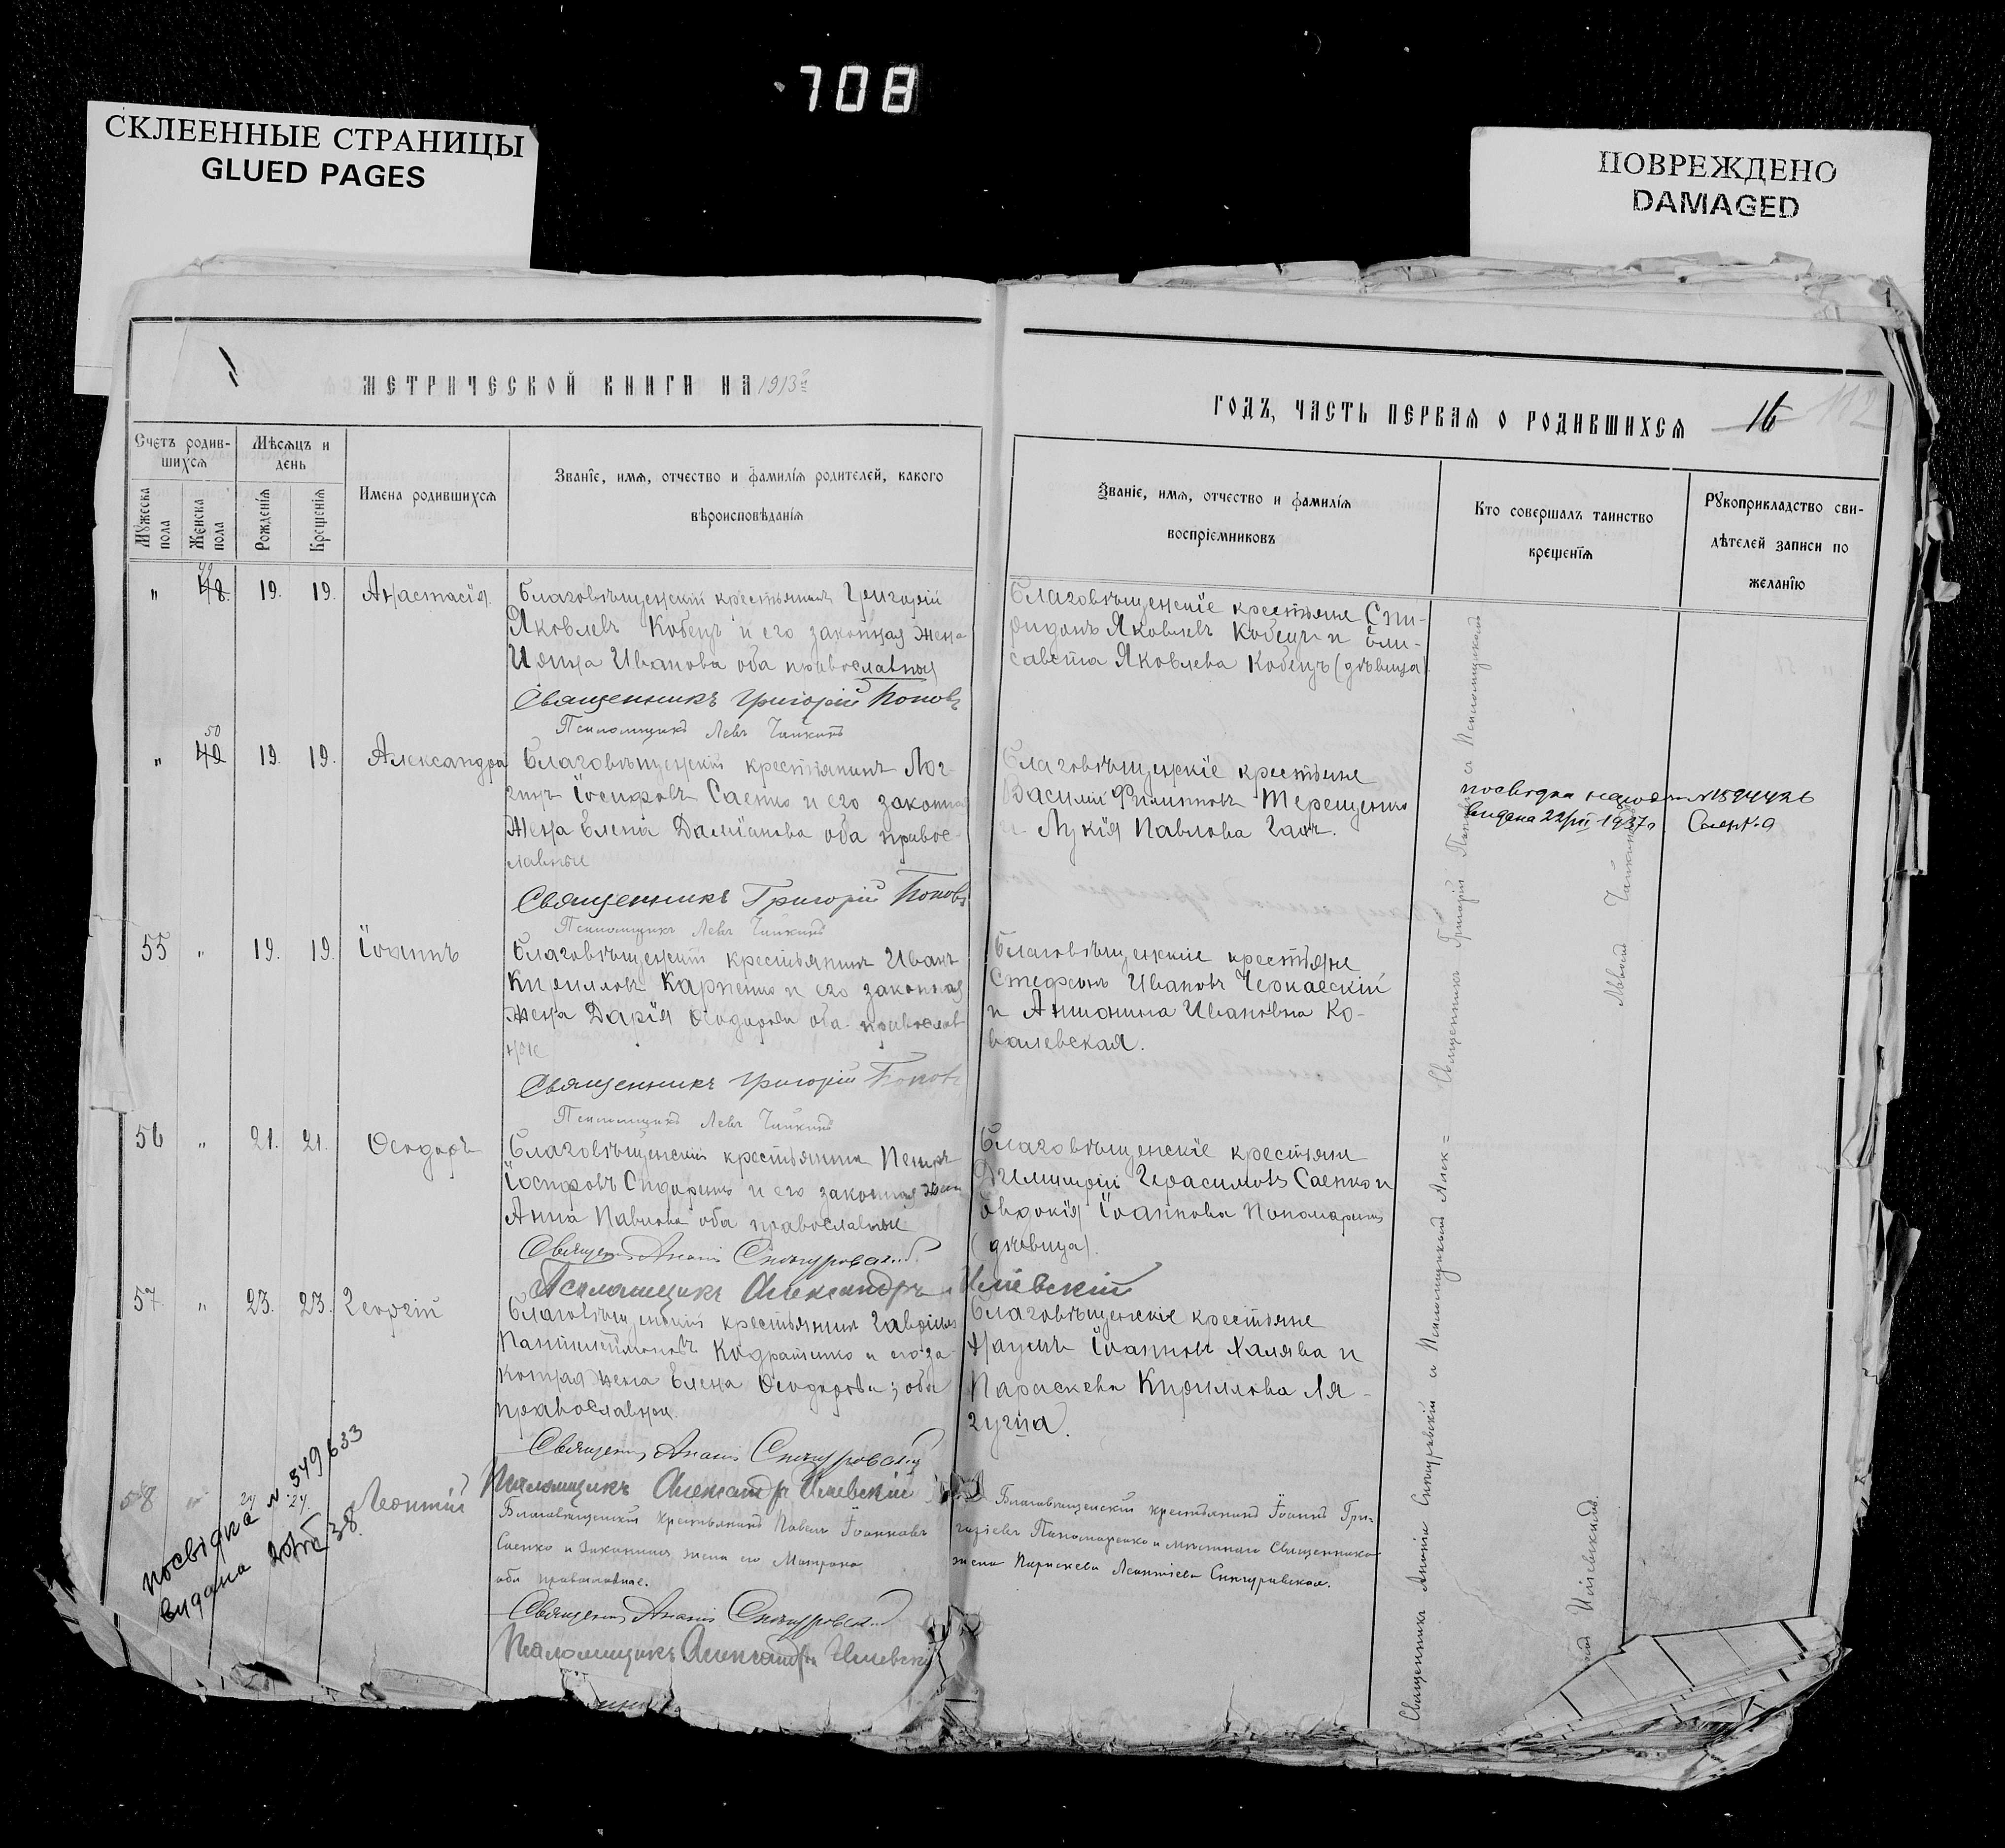 708
СКЛЕЕННЫЕ СТРАНИЦЫ
GLUED PAGES
ПОВРЕЖДЕНО
DAMAGED
МЕТРИЧЕСКОЙ КНИГИ НА 1913
Счетъ родив-
шихся
Мѣсяцъ и
день
Мужеска
пола
Женска
пола
Рожденія
Крещенія
Имена родившихся
Званіе, имя, отчество и фамилія родителей, какого
вѣроисповѣданія
49
" 48. 19. 19. Анастасія
Благовѣщенскій крестьянинъ Григорій
Яковлевъ Кобецъ и его законная жена
Ивановна оба православныя
Священникъ Григорій Поповъ
Псаломщикъ Левъ Чайкинъ
50
" 49 19. 19. Александра
Благовѣщенскій крестьянинъ Лог-
гинъ Іосифовъ Саенко и его законная
жена Елена Даміанова оба правос-
лавные
Священникъ Григорій Поповъ
Псаломщикъ Левъ Чайкинъ
55 " 19. 19. Іоаннъ
Благовѣщенскій крестьянинъ Иванъ
Кирилловъ Карпенко и его законная
жена Дарія Ѳеодорова оба православ
ные
Священникъ Григорій Поповъ
Псаломщикъ Левъ Чайкинъ
56 " 21. 21. Ѳеодоръ
Благовѣщенскій крестьянинъ Петръ
Іосифовъ Сидоренко и его законная жена
Анна Павлова оба православные
Священ. Ананій
Псаломщикъ Александръ Илиевскій
57 " 23. 23. Георгій
Благовѣщенскій крестьянинъ Гавріилъ
Пантелеймоновъ Кодратенко и его за-
конная жена Елена Ѳеодорова; оба
православные.
Священ. Ананій
Псаломщикъ Александръ Илиевскій
58 " 24 24. Леонтій
Благовѣщенскій крестьянинъ Павелъ Іоанновъ
Саенко и Законная жена его Матрона
оба православные.
Священ. Ананій
Псаломщикъ Александръ Илиевскій
посвідка N 349633
видана 38
ГОДЪ, ЧАСТЬ ПЕРВАЯ О РОДИВШИХСЯ 16 112
Званіе, имя, отчество и фамилія
воспріемниковъ
Кто совершалъ таинство
крещенія
Рукоприкладство сви-
дѣтелей записи по
желанію
Благовѣщенскіе крестьяне Спи-
ридонъ Яковлевъ Кобецъ и Ели-
савета Яковлева Кобецъ (дѣвица)
Благовѣщенскіе крестьяне
Василій Филипповъ Терещенко
и Лукія Павлова
посвідка N 1594426
видана 22/III 1937 р.
Благовѣщенскіе крестьяне
Стефанъ Ивановъ Черкаескій
и Антонина Ивановна Ко-
валевская.
Благовѣщенскіе крестьяне
Димитрій Герасимовъ Саенко и
Евдокія Іоаннова Пономаренко
(дѣвица).
Благовѣщенскіе крестьяне
Наумъ Іоанновъ Халява и
Параскева Кириллова Ля-
гуша.
Благовѣщенскій крестьянинъ Іоаннъ Гри-
горіевъ Пономаренко и мѣстнаго Священника
жена Параскева Леонтіева Снигуровская.
Священникъ Григорій Поповъ съ Псаломщикомъ
Львомъ Чайкинымъ
Священникъ Ананій Снигуровскій и Псаломщикомъ Алек=
Илиевскимъ.